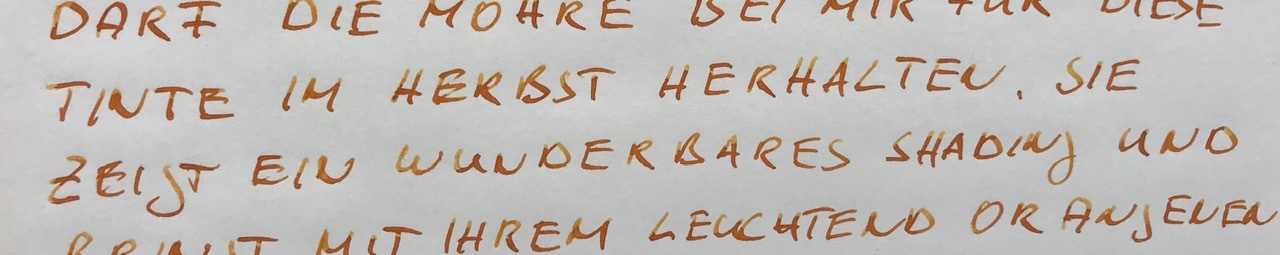 DARF DIE MÖHRE BEI MIR FÜR DIESE
TINTE IM HERBST HERHALTEN. SIE
ZEIGT EIN WUNDERBARES SHADING UND
BRINGT MIT IHREM LEUCHTEND ORANGENEN